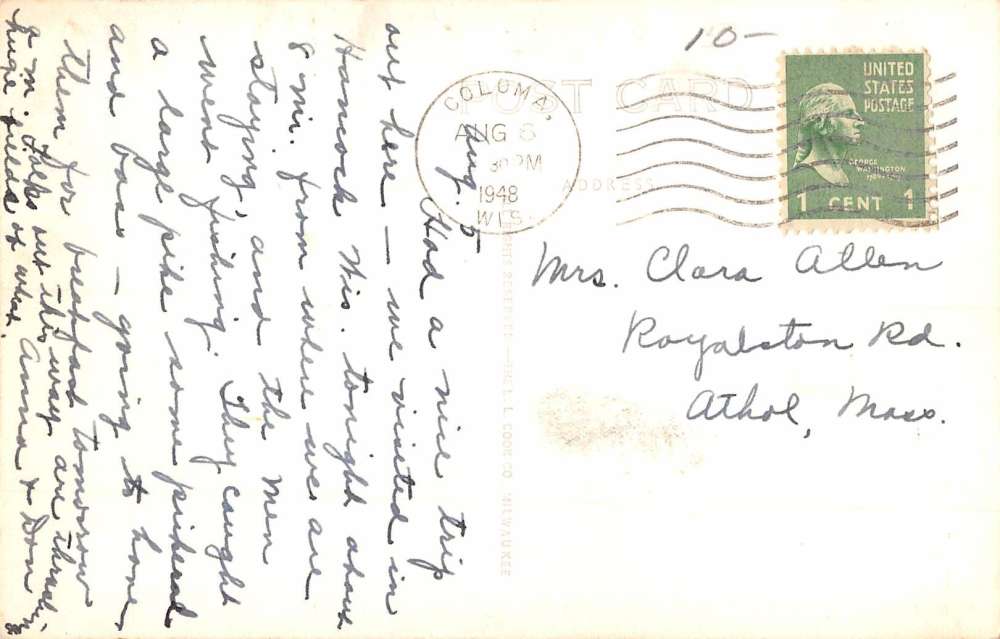 10-
POST CARD
COLOMA,
AUG 6
30 PM
1948
WIS.
UNITED
STATES
POSTAGE
GEORGE
WASHINGTON
1 CENT 1
ADDRESS
Mrs. Clara Allen
Royalston Rd.
Athol, Mass.
Aug. 5
Had a nice trip
out here — we visited in
Hancock Wis. tonight about
8 mi. from where we are
staying, and the men
went fishing. They caught
a large pike some pickeral
and bass — going to have
them for breakfast tomorrow
a.m. Folks out this way are
huge fields of wheat. Anna & Don
RIGHTS RESERVED — L. L. COOK CO. MILWAUKEE